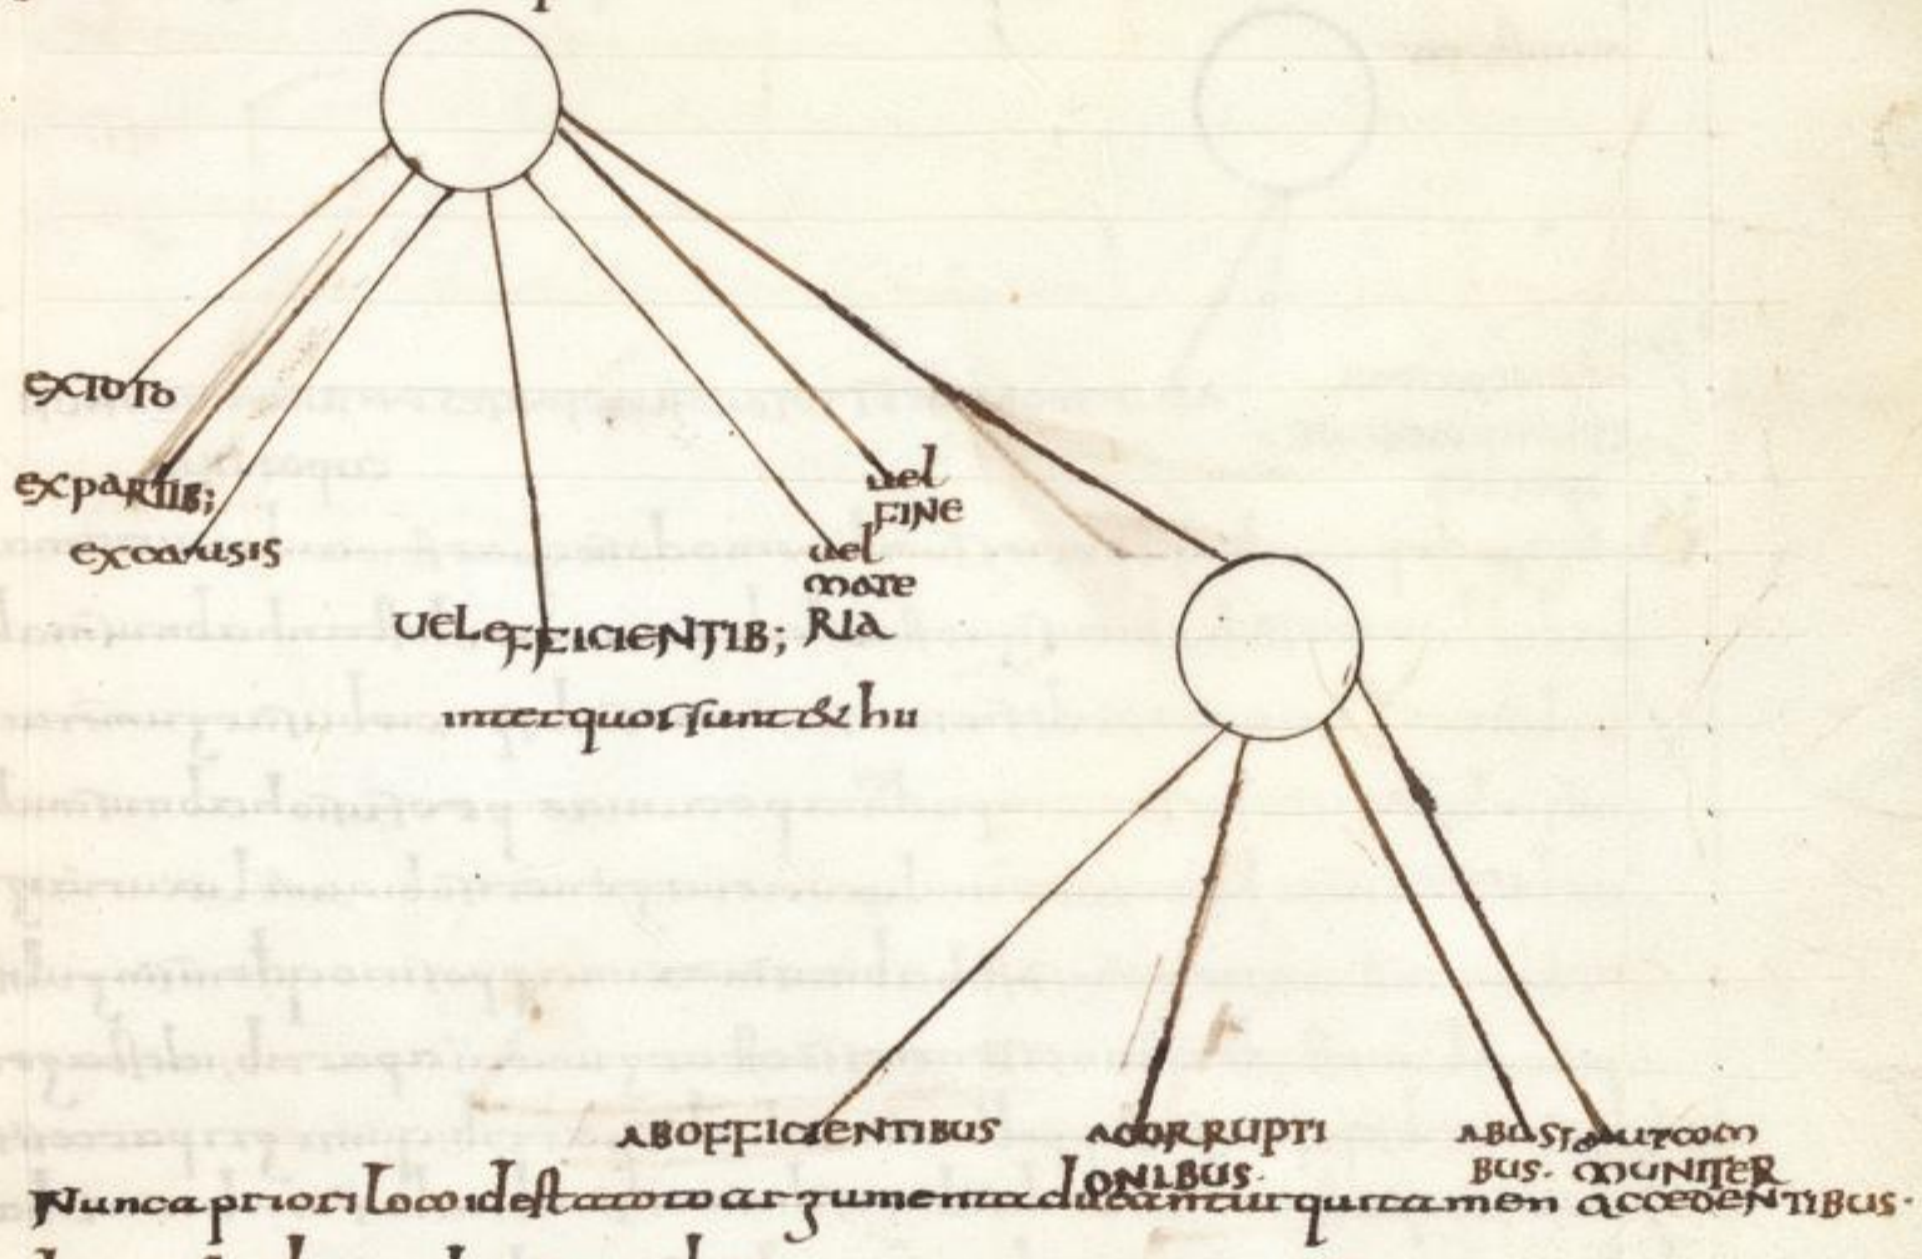 EXTOTO
EXPARTIB;
EXCAUSIS
UEL EFFICIENTIB;
uel
MATE
RIA
uel
FINE
inter quos sunt & hii
ABOFFICIENTIBUS
ACORRUPTI
ONIBUS·
ABUSI
BUS·
AUTCOM
MUNITER
ACCEDENTIBUS·
Nunc a priori loco id est a toto argumenta ducantur qui tamen